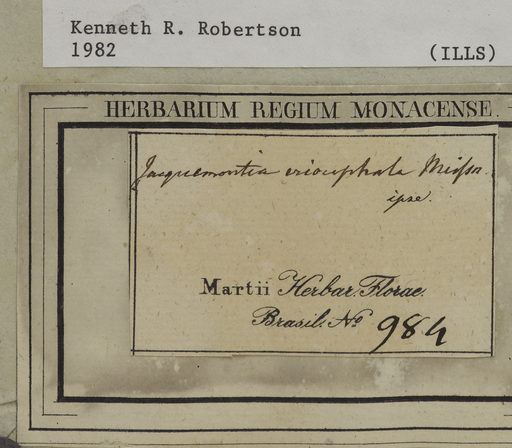 Kenneth R. Robertson
1982 (ILLS)
HERBARIUM REGIUM MONACENSE.
Jacquemontia eriocephala Meissn.
ipse.
Martii Herbar. Florae
Brasil. No 984